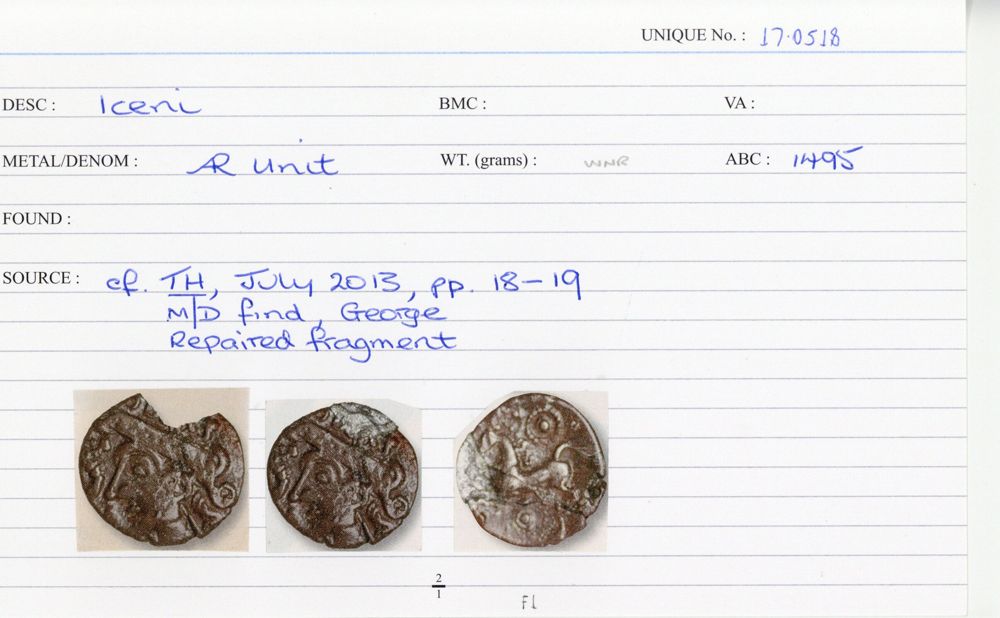 UNIQUE No. : 17·0518
DESC : Iceni BMC : VA :
METAL/DENOM : AR Unit WT. (grams) : WNR ABC : 1495
FOUND :
SOURCE : cf. TH, July 2013, pp. 18-19
M/D find, George
Repaired fragment
2/1